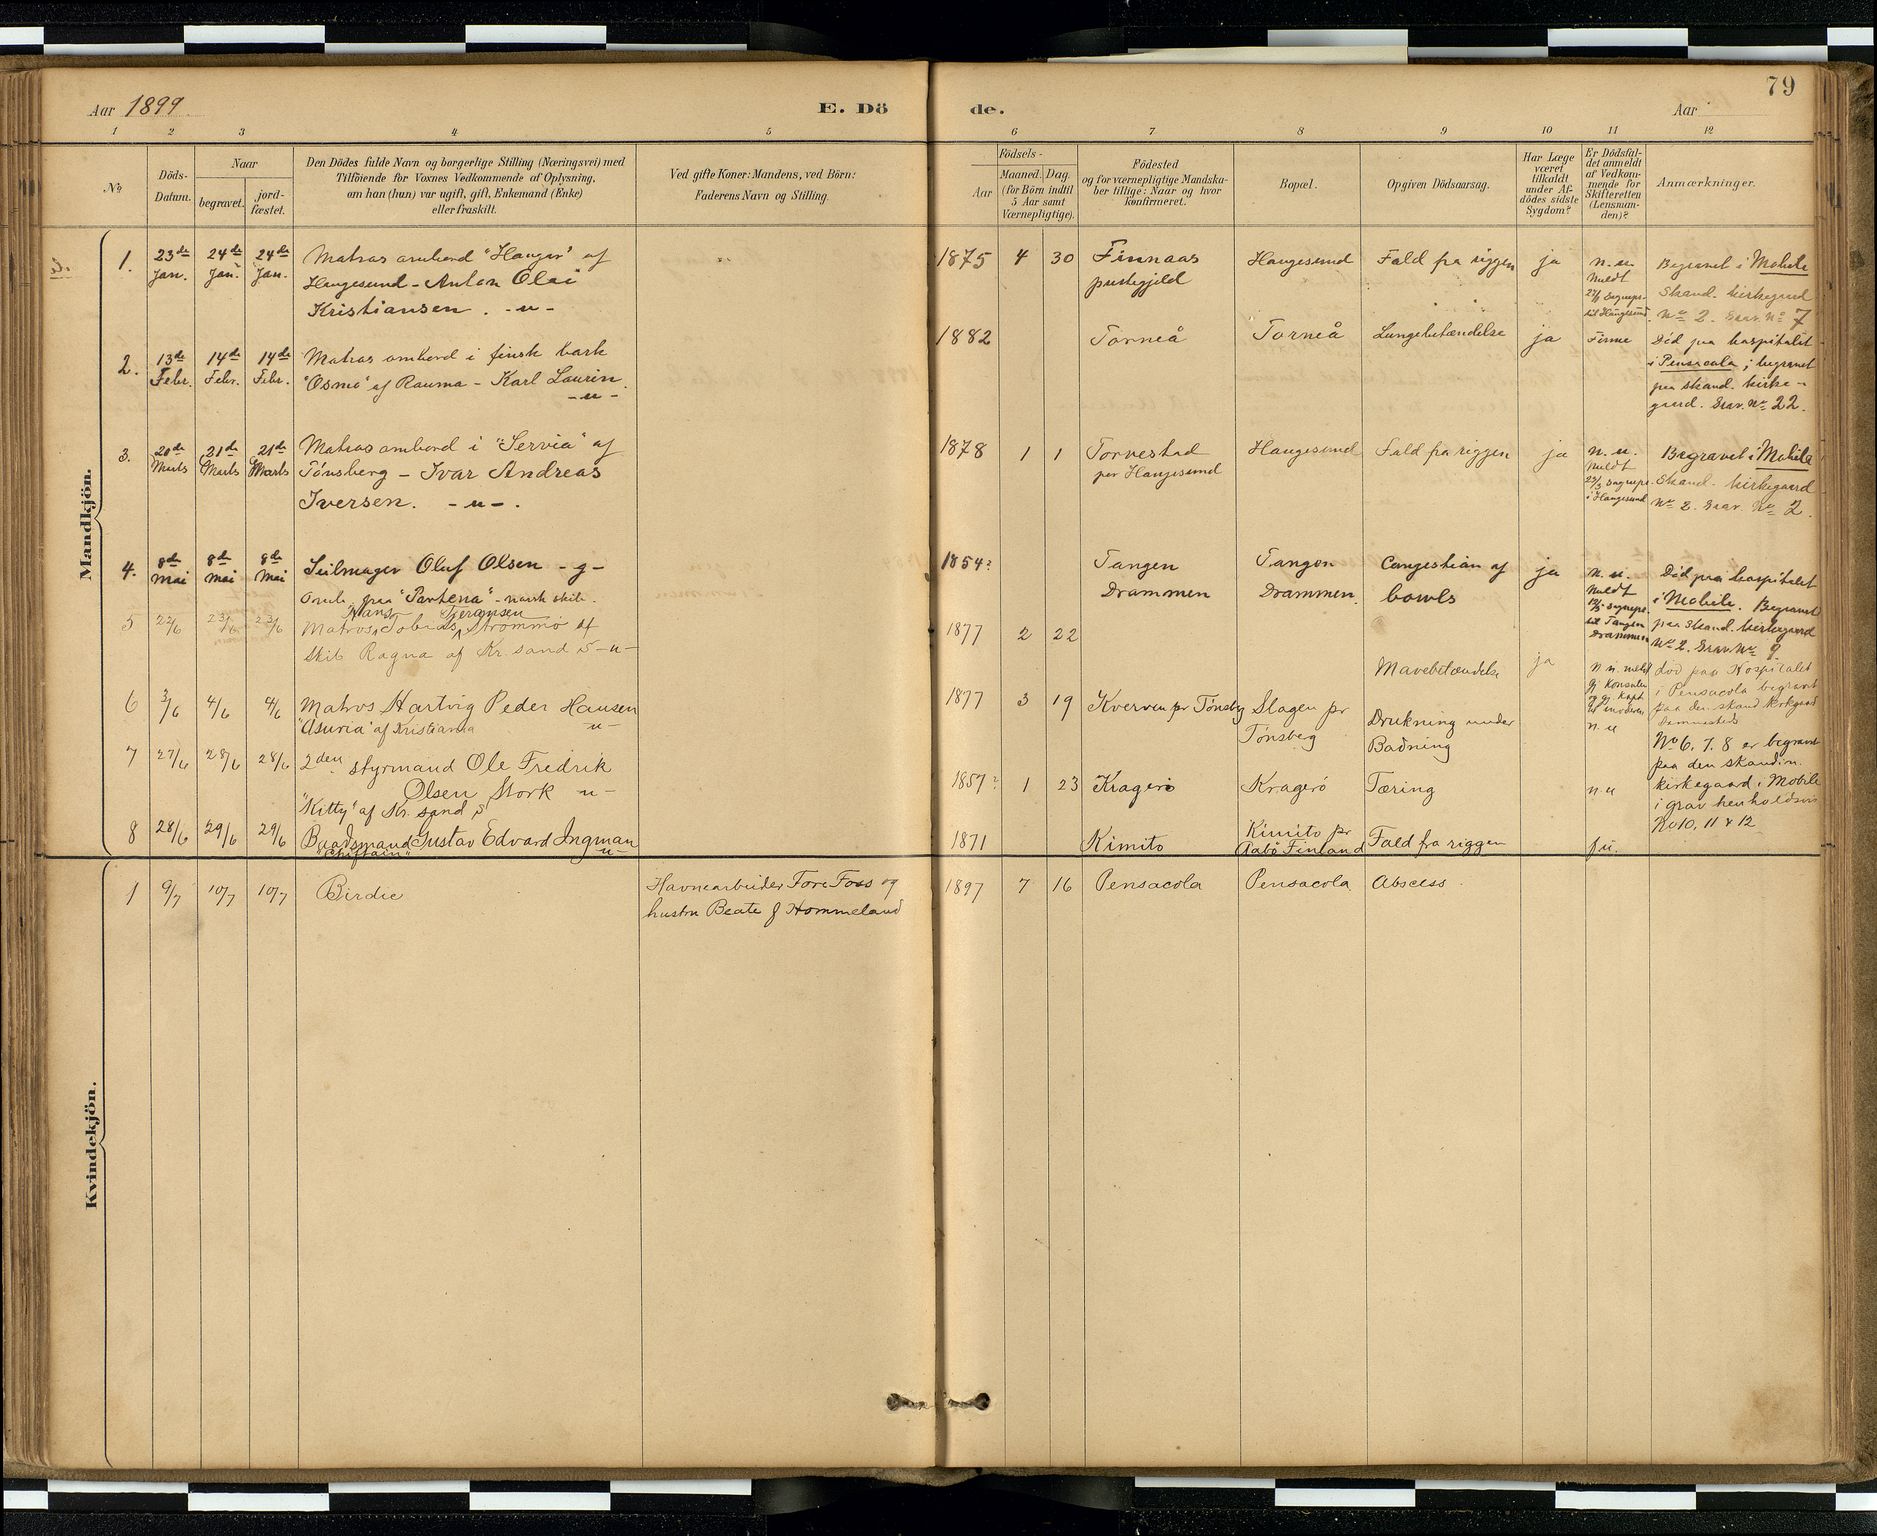 Aar 1899.
E. Dö
de.
Aar
79
1 2 3 4 5 6 7 8 9 10 11 12
No
Döds-
Datum.
Naar
begravet.
jord-
fæstet.
Den Dödes fulde Navn og borgerlige Stilling (Næringsvei) med
Tilföiende for Voxnes Vedkommende af Oplysning,
om han (hun) var ugift, gift, Enkemand (Enke)
eller fraskilt.
Ved gifte Koner: Mandens, ved Börn:
Faderens Navn og Stilling.
Födsels-
Aar
Maaned. Dag.
(for Börn indtil
5 Aar samt
Værnepligtige).
Födested
og for værnepligtige Mandska-
ber tillige: Naar og hvor
konfirmeret.
Bopæl.
Opgiven Dödsaarsag.
Har Læge
været
tilkaldt
under Af-
dödes sidste
Sygdom?
Er Dödsfal-
det anmeldt
af Vedkom-
mende for
Skifteretten
(Lensman-
den)?
Anmærkninger.
Mandkjön.
1.
23de Jan.
24de Jan.
24de Jan.
Matros ombord "Haugar" af
Haugesund - Anton Olai
Kristiansen. -u-
1875 4 30
Finnaas
prestegjeld
Haugesund
Fald fra riggen
ja
n.u.
Meldt
Begravet i Mobile
Skand. kirkegaard
No 2. Grav. No 7
2.
13de Febr.
14de Febr.
14de Febr.
Matros ombord i finsk bark
"Osmo" af Rauma - Karl Laurin.
-u-
1882
Torneå
Torneå
Lungebetændelse
ja
Finne
Död paa hospitalet
i Pensacola; begravet
paa skand. kirke-
gaard. Grav. No 22.
3.
20de Marts
21de Marts
21de Marts
Matros ombord i "Servia" af
Tönsberg - Ivar Andreas
Iversen. -u-.
1878 1 1
Torvestad
per Haugesund
Haugesund
Fald fra riggen
ja
n.u.
Meldt
i Haugesund
Begravet i Mobile
Skand. kirkegaard
No 2. Grav. No 2.
4.
8de Mai
8de Mai
8de Mai
Seilmager Oluf Olsen -g-
paa "Partena" - norsk skib.
1854?
Tangen
Drammen
Tangen
Drammen.
Congestion af
bowls
ja
n.u.
Meldt
til Tangen
Drammen
Död paa hospitalet
i Mobile. Begravet
paa Skand. kirkegaard
No 2. Grav No 9
5
22/6
23/6
23/6
Hans Tjeransen
Matros Tobias Strømmø af
Skib Ragna af Kr.sand S -u-
1877 2 22
Mavebetændelse
ja
n.u. meldt
gj Konsulen
og gj. Kapt.
död paa Hospitalet
i Pensacola begravet
paa den skand kirkegaard
sammesteds
6
3/6
4/6
4/6
Matros Hartvig Peder Hansen
"Asuria" af Kristiania -u-
1877 3 19
Kverven pr Tönsbg
Slagen pr
Tönsberg
Drukning under
Badning
n.u
No 6. 7. 8 er begravet
paa den skandin.
kirkegaard i Mobile
i grav henholdsvis
No 10, 11 & 12
7
27/6
28/6
28/6
2den styrmand Ole Fredrik
Olsen Stork u-
"Kitty" af Kr. sand S
1857? 1 23
Kragerö
Kragerö
Tæring
n.u
8
28/6
29/6
29/6
Baadsmand Gustav Edvard Ingman
"Chiftain" -u-
1871
Kimito
Kimito pr
Aabö Finland
Fald fra riggen
fu.
Kvindekjön.
1
9/7
10/7
10/7
Birdie
Havnearbeider Tore Foss og
hustru Beate f Hommeland
1897 7 16
Pensacola
Pensacola
Abscess.